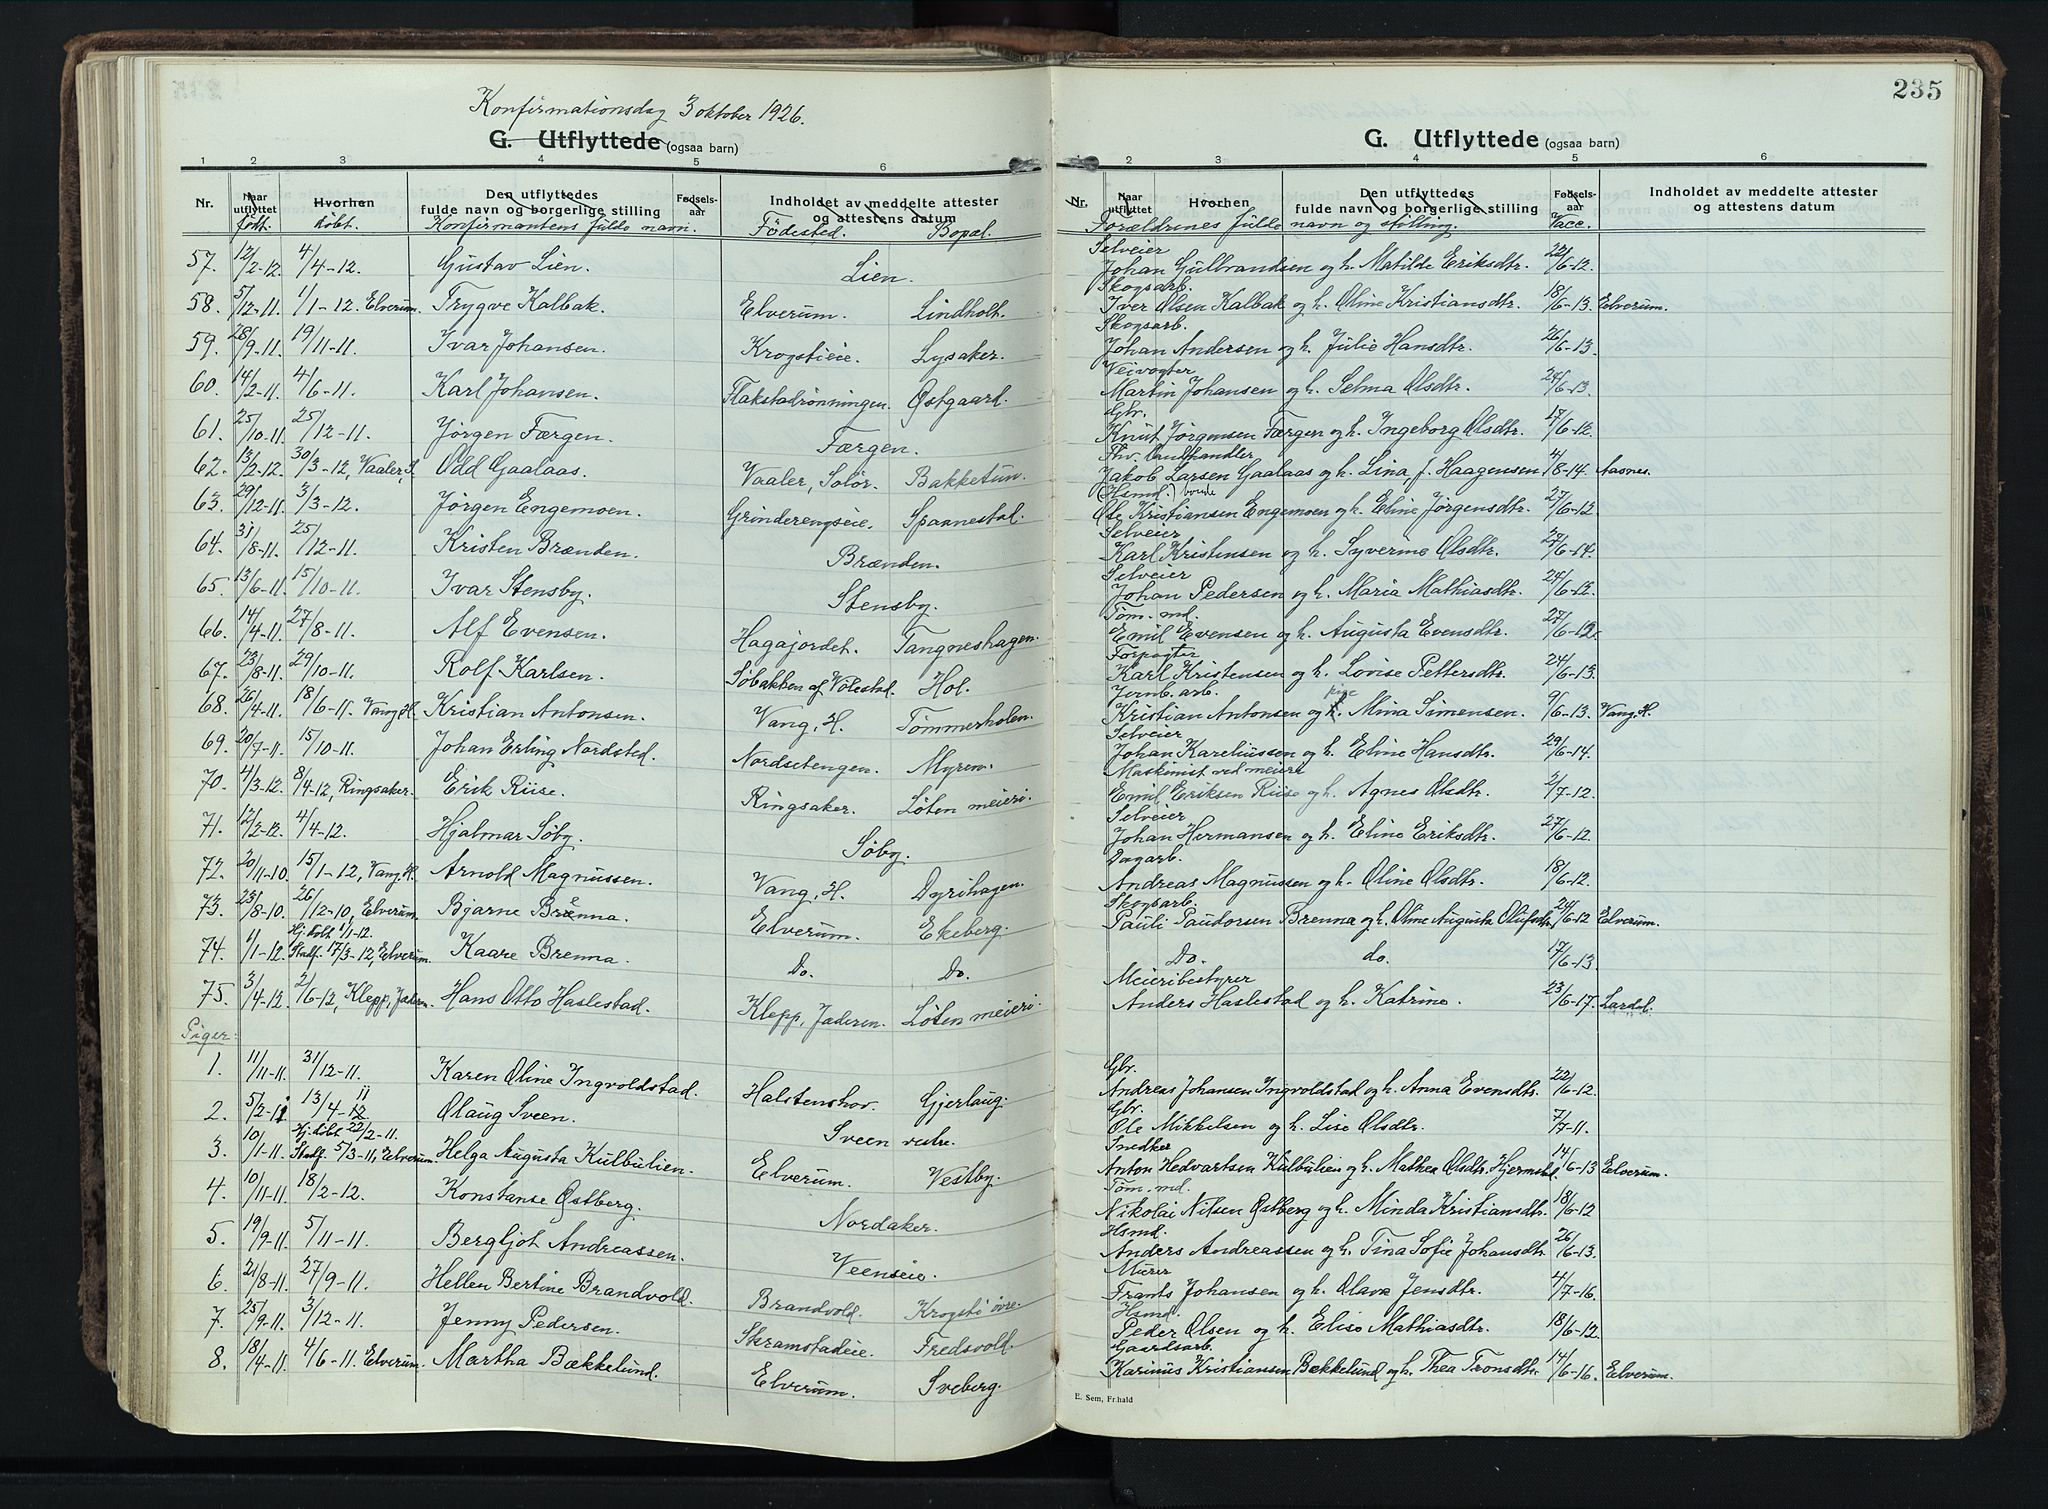 Konfirmationsdag 3 oktober 1926.
G. Utflyttede (ogsaa barn)
1 2 3 4 5 6
Nr. Naar utflyttet Hvorhen Den utflyttedes fulde navn og borgerlige stilling Fødsels-aar Indholdet av meddelte attester og attestens datum
født. døbt. Konfirmantens fulde navn. Fødested. Bopæl.
57. 12/2-12. 4/4-12. Gustav Lien. Lien.
58. 5/12-11. 1/1-12. Elverum. Trygve Kalbak. Elverum. Lindholt.
59. 28/9-11. 19/11-11. Ivar Johansen. Krogstieie. Lysaker.
60. 14/2-11. 4/6-11. Karl Johansen. Flakstadrønningen. Østgaard.
61. 25/10-11. 25/12-11. Jørgen Færgen. Færgen.
62. 13/2-12. 30/3-12, Vaaler, S. Odd Gaalaas. Vaaler, Solør. Bakketun.
63. 29/12-11. 3/3-12. Jørgen Engemoen. Grinderengseie. Spannestal.
64. 31/8-11. 25/12-11. Kristen Brænden. Brænden.
65. 13/6-11. 15/10-11. Ivar Stensby. Stensby.
66. 14/4-11. 27/8-11. Alf Evensen. Hagajordet. Tangneshagen.
67. 23/8-11. 29/10-11. Rolf Karlsen. Søbakken af Vølestad. Hol.
68. 26/4-11. 18/6-11. Vang, H. Kristian Antonsen. Vang, H. Tømmerholen.
69. 20/7-11. 15/10-11. Johan Erling Nordsted. Nordsetengen. Myren.
70. 4/3-12. 8/4-12, Ringsaker. Erik Riise. Ringsaker. Løten meieri.
71. 12/2-12. 4/4-12. Hjalmar Søby. Søby.
72. 20/11-10. 15/1-12, Vang, H. Arnold Magnussen. Vang, H. Dyrihagen.
73. 23/8-10. 26/12-10, Elverum. Bjarne Brenna. Elverum. Ekeberg.
Hj. døbt 1/1-12.
74. 1/1-12. Stadf. 17/3-12, Elverum. Kaare Brenna. Do. Do.
75. 3/4-12. 2/6-12, Klepp, Jæderen. Hans Otto Haslestad. Klepp, Jæderen. Løten meieri.
Piger:
1. 11/11-11. 31/12-11. Karen Oline Ingvoldstad. Halstenshov. Gjerlaug.
2. 5/2-11 13/4-11 Olaug Sveen. Sveen vestre.
Hj. døbt 22/2-11.
3. 10/1-11. Stadf. 5/3-11, Elverum. Helga Augusta Kulbulien. Elverum. Vestby.
4. 10/11-11. 18/2-12. Konstanse Østberg. Nordaker.
5. 19/9-11. 5/11-11. Bergljot Andreassen. Veenseie.
6. 21/8-11. 27/9-11. Hellen Bertine Brandvold. Brandvold. Krogsti øvre.
7. 25/9-11. 3/12-11. Jenny Pedersen. Skramstadeie. Fredsvold.
8. 18/4-11. 4/6-11. Elverum. Martha Bækkelund. Elverum. Sveberg.
235
G. Utflyttede (ogsaa barn)
1 2 3 4 5 6
Nr. Naar utflyttet Hvorhen Den utflyttedes fulde navn og borgerlige stilling Fødsels-aar Indholdet av meddelte attester og attestens datum
Forældrenes fulde navn og stilling. Vacc.
Selveier
Johan Gulbrandsen og h. Matilde Eriksdtr. 22/6-12.
Skogsarb.
Iver Olsen Kalbak og h. Oline Kristiansdtr. 18/6-13. Elverum.
Skogsarb.
Johan Andersen og h. Julie Hansdtr. 26/6-13.
Veivogter
Martin Johansen og h. Selma Olsdtr. 24/6-13.
Gbr.
Knut Jørgensen Færgen og h. Ingeborg Olsdtr. 17/6-12.
Fhv. Landhandler
Jakob Larsen Gaalaas og h. Lina, f. Haagensen 4/8-14. Aasnes.
(Hsmd.) bonde
Ole Kristiansen Engemoen og h. Eline Jørgensdtr. 27/6-12.
Selveier
Karl Kristensen og h. Syverine Olsdtr. 27/6-14.
Selveier
Johan Pedersen og h. Maria Mathiasdtr. 24/6-12.
Tøm. md.
Emil Evensen og h. Augusta Evensdtr. 27/6-12.
Forpagter
Karl Kristensen og h. Lovise Pettersdtr. 24/6-13.
Jernb. arb.
Kristian Antonsen og pige Mina Simensen. 9/6-13. Vang, H.
Selveier
Johan Kareliussen og h. Eline Hansdtr. 29/6-14.
Maskinist ved meieri
Emil Eriksen Riise og h. Agnes Olsdtr. 2/7-12.
Selveier
Johan Hermansen og h. Eline Eriksdtr. 27/6-12.
Dagarb.
Andreas Magnussen og h. Oline Olsdtr. 18/6-12.
Skogsarb.
Pauli Paudorsen Brenna og h. Oline Augusta Olufsdtr. 24/6-12 Elverum.
Do. do. 17/6-13.
Meieribestyrer
Anders Haslestad og h. Katrine. 23/6-17. Lardal.
Gbr.
Andreas Johansen Ingvoldstad og h. Anna Evensdtr. 22/6-12.
Gbr.
Ole Mikkelsen og h. Lise Olsdtr. 7/7-11.
Snedker
Anton Hedvartsen Kulbulien og h. Mathea Olsdtr. Hjermstad. 14/6-13 Elverum.
Tøm. md.
Nikolai Nilsen Østberg og h. Minda Kristiansdtr. 18/6-12
Hsmd.
Anders Andreassen og h. Tina Sofie Johansdtr. 26/6-13.
Murer
Frants Johansen og h. Olava Jensdtr. 4/7-16.
Hsmd.
Peder Olsen og h. Elise Mathiasdtr. 18/6-12.
Gaardsarb.
Karinus Kristiansen Bækkelund og h. Thea Tronsdtr. 14/6-16. Elverum.
E. Sem, Fr.hald